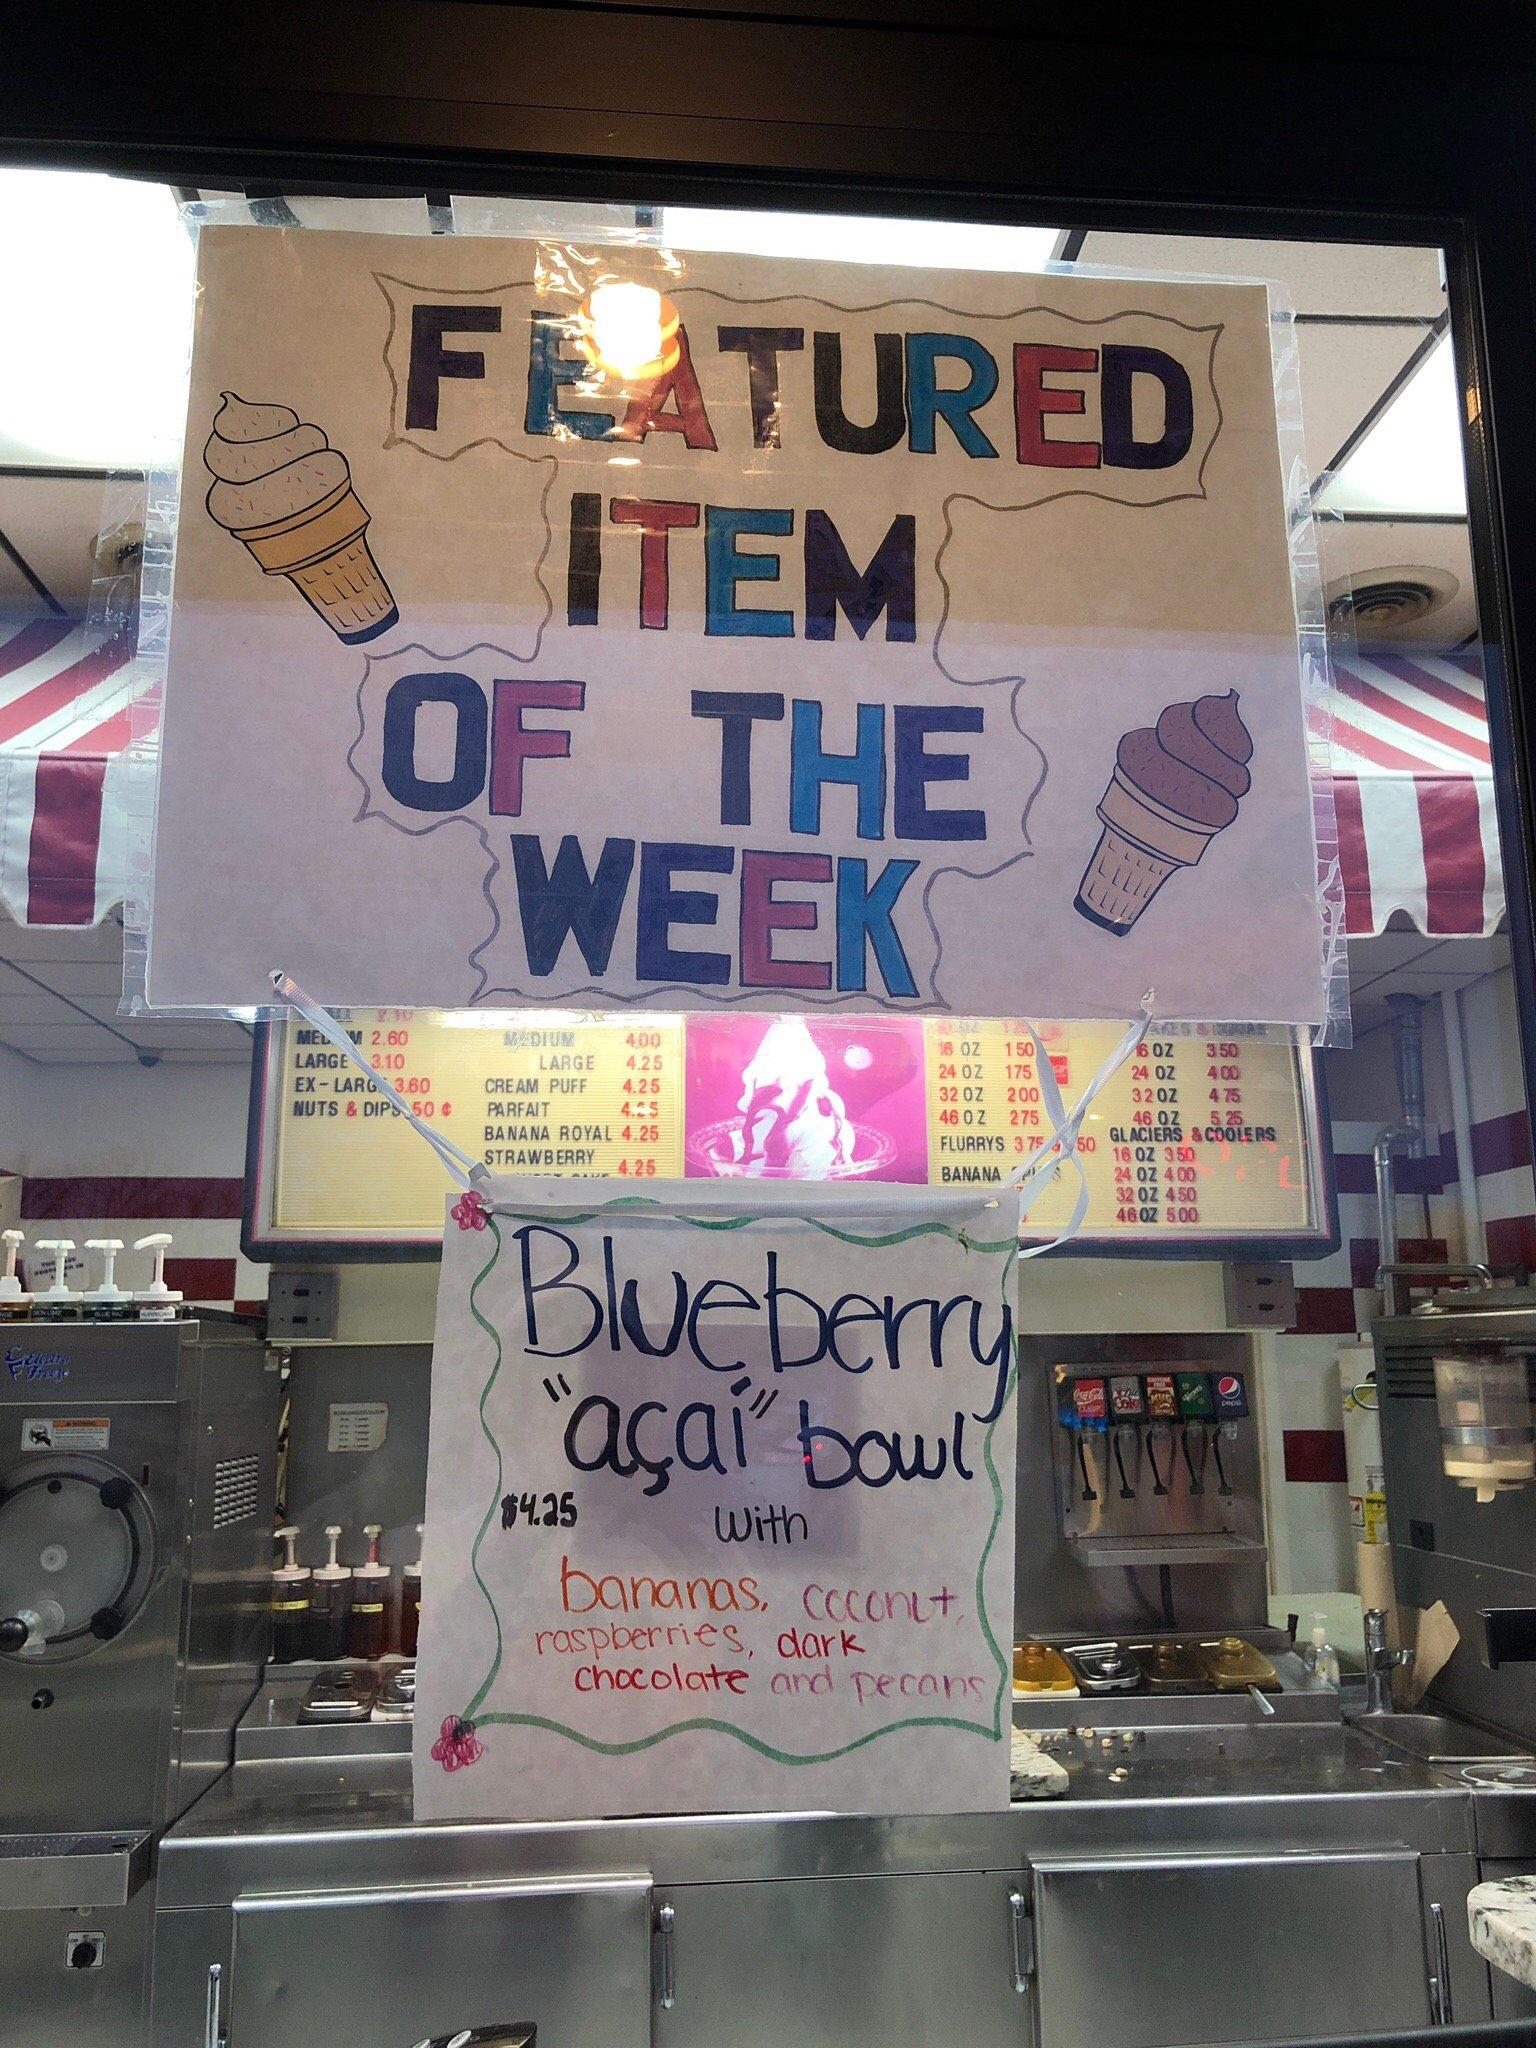 FEATURED
ITEM
OF THE
WEEK
MEDIUM 2.60
LARGE 3.10
EX-LARGE 3.60
NUTS & DIPS .50 ¢
MEDIUM 4.00
LARGE 4.25
CREAM PUFF 4.25
PARFAIT 4.25
BANANA ROYAL 4.25
STRAWBERRY
4.25
16 OZ 150
24 OZ 175
32 OZ 200
46 OZ 275
FLURRYS 375
BANANA
16 OZ 350
24 OZ 400
32 OZ 475
46 OZ 5.25
GLACIERS & COOLERS
16 OZ 350
24 OZ 400
32 OZ 450
46 OZ 500
Blueberry
"açaí" bowl
$4.25 with
bananas, coconut,
raspberries, dark
chocolate and pecans
Electro
Freeze
BLUE RAZ
Coca-Cola
CLASSIC
Coke
MUG
pepsi